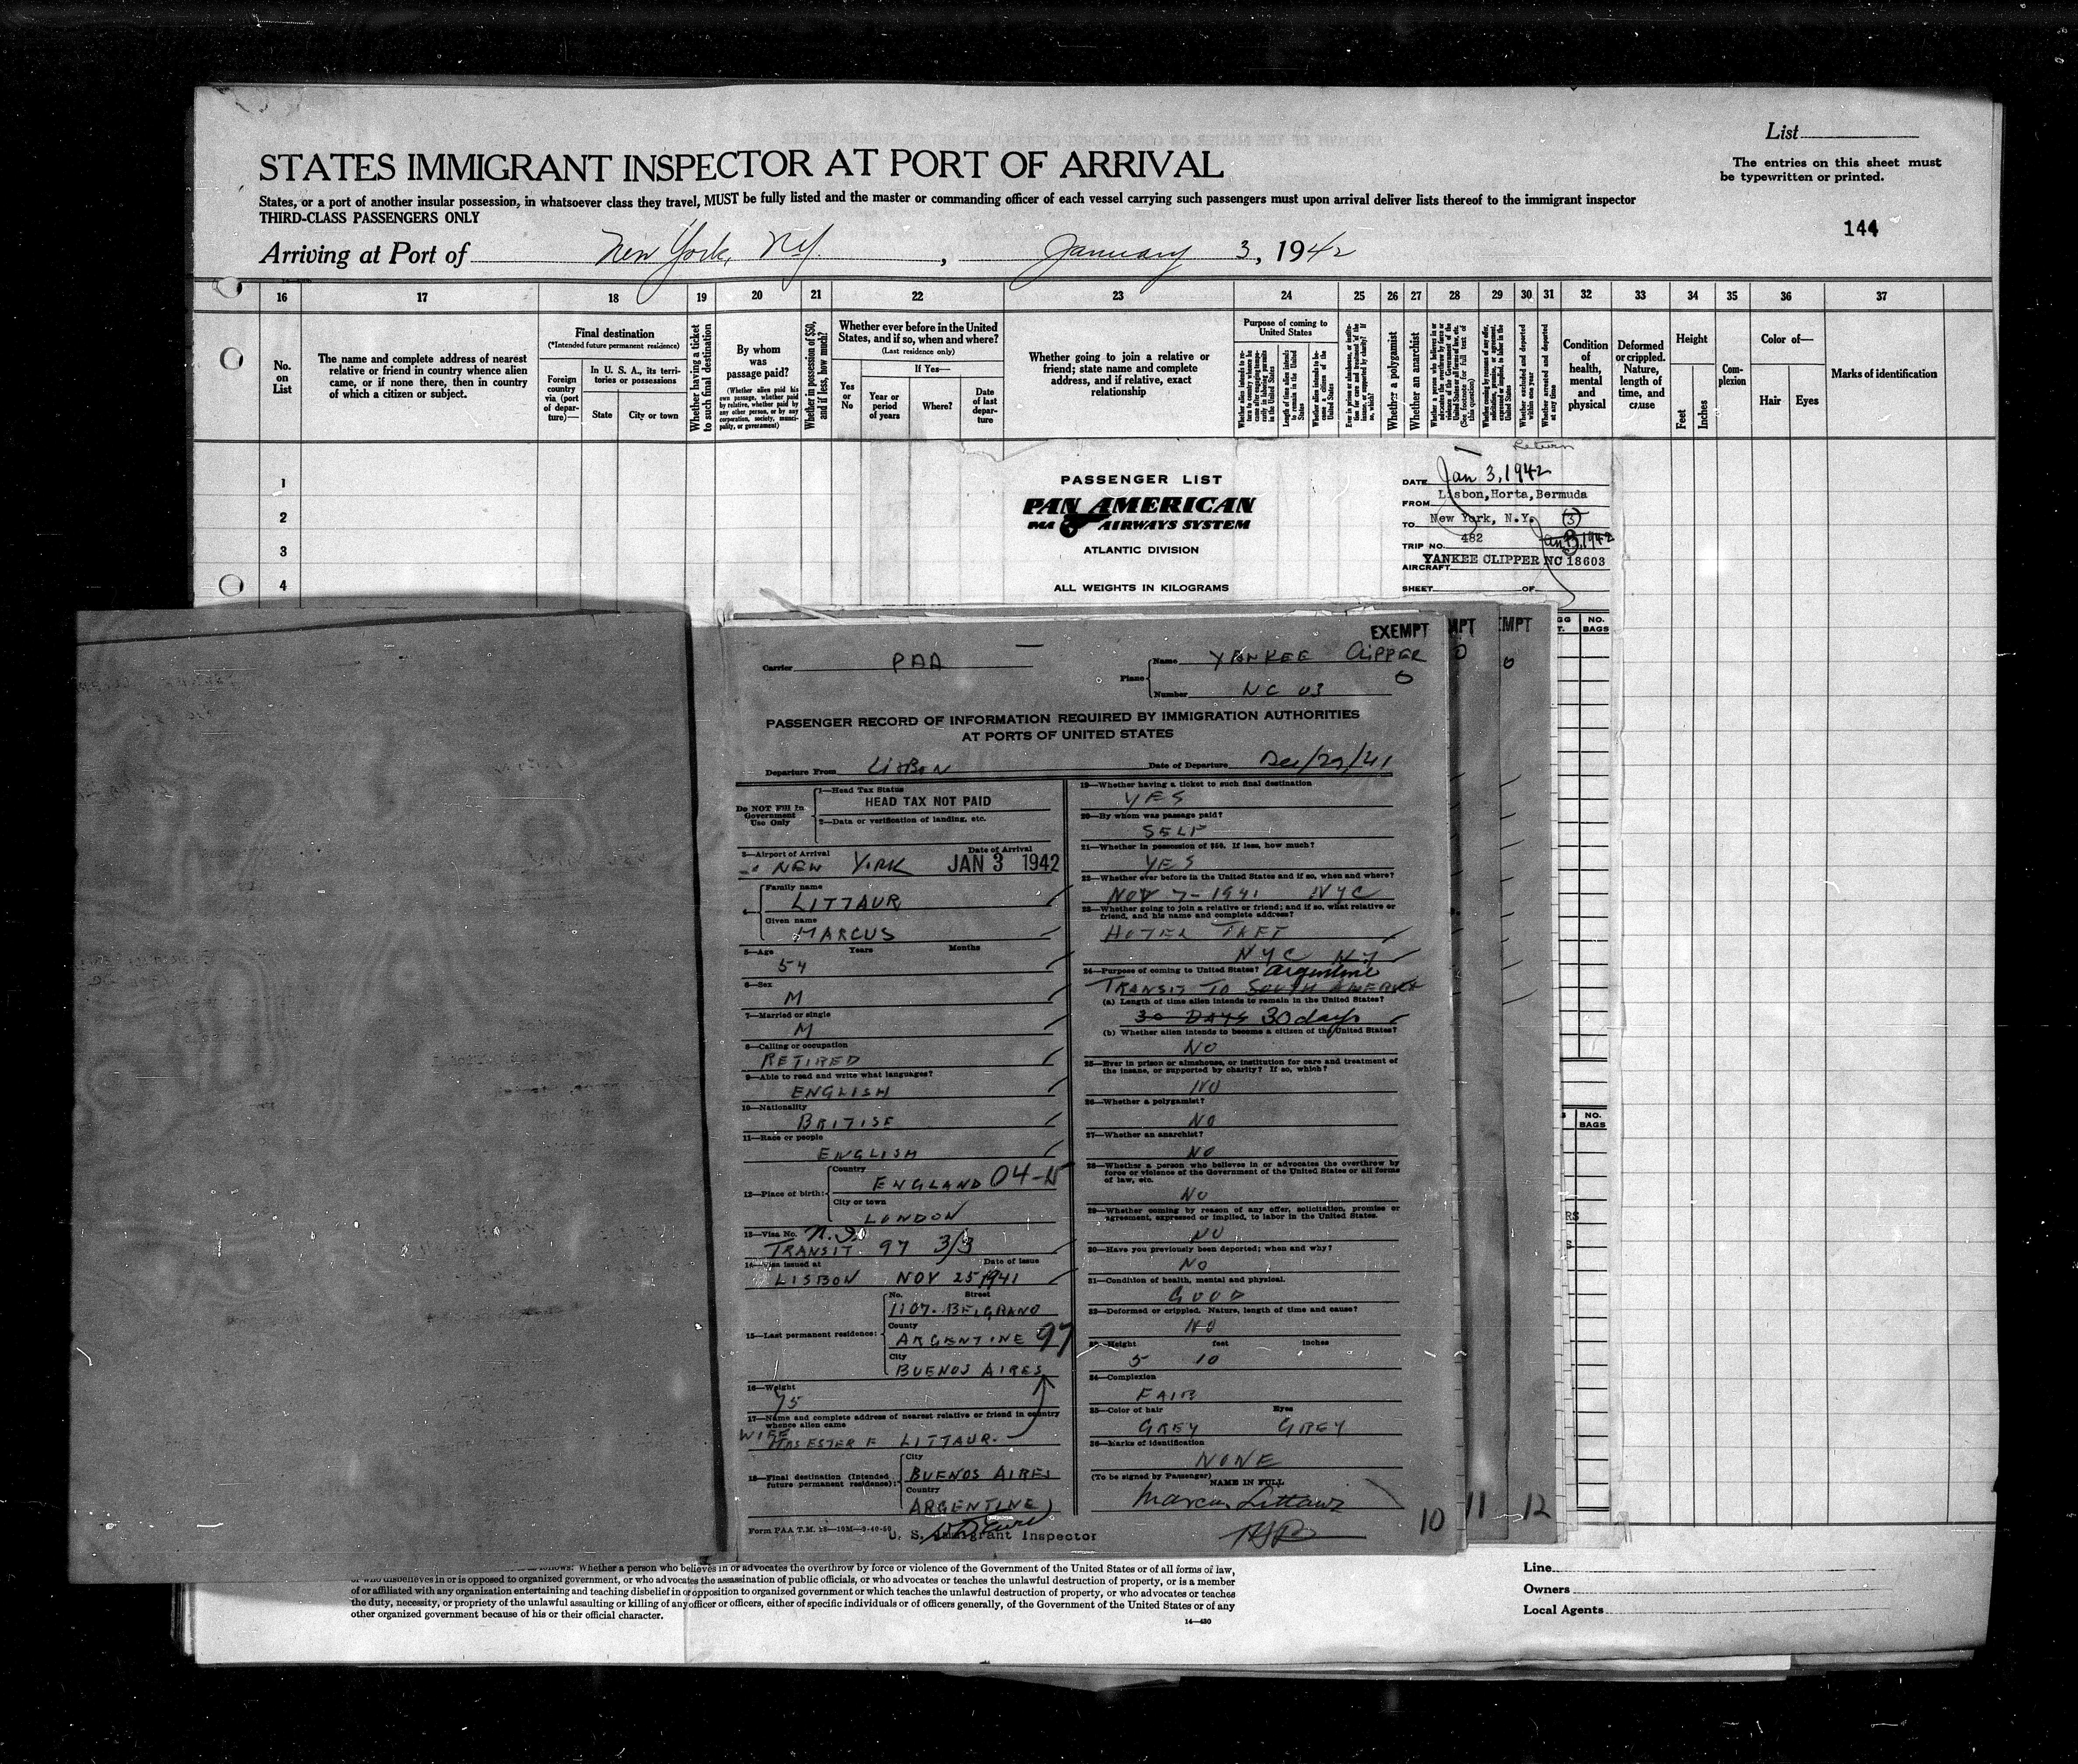 List
STATES IMMIGRANT INSPECTOR AT PORT OF ARRIVAL
The entries on this sheet must
be typewritten or printed.
States, or a port of another insular possession, in whatsoever class they travel, MUST be fully listed and the master or commanding officer of each vessel carrying such passengers must upon arrival deliver lists thereof to the immigrant inspector
THIRD-CLASS PASSENGERS ONLY
144
Arriving at Port of New York, N.Y. , January 3, 1942
16 17 18 19 20 21 22 23 24 25 26 27 28 29 30 31 32 33 34 35 36 37
No.
on
List
The name and complete address of nearest
relative or friend in country whence alien
came, or if none there, then in country
of which a citizen or subject.
Final destination
(*Intended future permanent residence)
Foreign
country
via (port
of depar-
ture)—
In U. S. A., its terri-
tories or possessions
State
City or town
Whether having a ticket
to such final destination
By whom
was
passage paid?
(Whether alien paid his
own passage, whether paid
by relative, whether paid by
any other person, or by any
corporation, society, munici-
pality, or government)
Whether in possession of $50,
and if less, how much?
Whether ever before in the United
States, and if so, when and where?
(Last residence only)
If Yes—
Yes
or
No
Year or
period
of years
Where?
Date
of last
depar-
ture
Whether going to join a relative or
friend; state name and complete
address, and if relative, exact
relationship
Purpose of coming to
United States
Length of time alien intends
to remain in the United
States
Whether a polygamist
Whether an anarchist
Condition
of
health,
mental
and
physical
Deformed
or crippled.
Nature,
length of
time, and
cause
Height
Feet
Inches
Com-
plexion
Color of—
Hair
Eyes
Marks of identification
1
2
3
4
PASSENGER LIST
PAN AMERICAN
PAA AIRWAYS SYSTEM
ATLANTIC DIVISION
ALL WEIGHTS IN KILOGRAMS
Return
DATE Jan 3, 1942
FROM Lisbon, Horta, Bermuda
TO New York, N.Y. (3)
TRIP NO. 482
YANKEE CLIPPER NC 18603
AIRCRAFT
SHEET OF
NO.
BAGS
NO.
BAGS
EXEMPT
MPT
EMPT
Carrier PAA
Plane Name YANKEE CLIPPER
Number NC 03
PASSENGER RECORD OF INFORMATION REQUIRED BY IMMIGRATION AUTHORITIES
AT PORTS OF UNITED STATES
Departure From LISBON Date of Departure Dec/29/41
Do NOT Fill In
Government
Use Only
1—Head Tax Status
HEAD TAX NOT PAID
2—Data or verification of landing, etc.
3—Airport of Arrival Date of Arrival
NEW YORK JAN 3 1942
4— Family name
LITTAUR
Given name
MARCUS
5—Age Years Months
54
6—Sex
M
7—Married or single
M
8—Calling or occupation
RETIRED
9—Able to read and write what languages?
ENGLISH
10—Nationality
BRITISE
11—Race or people
ENGLISH
12—Place of birth: Country
ENGLAND
City or town
LONDON
13—Visa No.
TRANSIT 97 3/3
14—Visa issued at Date of issue
LISBON NOV 25 1941
15—Last permanent residence: No. Street
1107. BELGRANO
County
ARGENTINE 97
City
BUENOS AIRES
16—Weight
75
17—Name and complete address of nearest relative or friend in country
whence alien came
WIFE
MRS ESTER F LITTAUR.
18—Final destination (Intended
future permanent residence): City
BUENOS AIRES
Country
ARGENTINE
Form PAA T.M.
U. S. Immigrant Inspector
19—Whether having a ticket to such final destination
YES
20—By whom was passage paid?
SELF
21—Whether in possession of $50. If less, how much?
YES
22—Whether ever before in the United States and if so, when and where?
NOV 7- 1941 NYC
23—Whether going to join a relative or friend; and if so, what relative or
friend, and his name and complete address?
HOTEL TAFT
NYC NY
24—Purpose of coming to United States? Argentine
TRANSIT TO SOUTH AMERICA
(a) Length of time alien intends to remain in the United States?
30 DAYS 30 days
(b) Whether alien intends to become a citizen of the United States?
NO
25—Ever in prison or almshouse, or institution for care and treatment of
the insane, or supported by charity? If so, which?
NO
26—Whether a polygamist?
NO
27—Whether an anarchist?
NO
28—Whether a person who believes in or advocates the overthrow by
force or violence of the Government of the United States or all forms
of law, etc.
NO
29—Whether coming by reason of any offer, solicitation, promise or
agreement, expressed or implied, to labor in the United States.
NO
30—Have you previously been deported; when and why?
NO
31—Condition of health, mental and physical.
GOOD
32—Deformed or crippled. Nature, length of time and cause?
NO
33—Height feet inches
5 10
34—Complexion
FAIR
35—Color of hair Eyes
GREY GREY
36—Marks of identification
NONE
(To be signed by Passenger)
NAME IN FULL
Marcus Littaur
10 11 12
Whether a person who believes in or advocates the overthrow by force or violence of the Government of the United States or of all forms of law,
or who disbelieves in or is opposed to organized government, or who advocates the assassination of public officials, or who advocates or teaches the unlawful destruction of property, or is a member
of or affiliated with any organization entertaining and teaching disbelief in or opposition to organized government or which teaches the unlawful destruction of property, or who advocates or teaches
the duty, necessity, or propriety of the unlawful assaulting or killing of any officer or officers, either of specific individuals or of officers generally, of the Government of the United States or of any
other organized government because of his or their official character.
14—430
Line
Owners
Local Agents